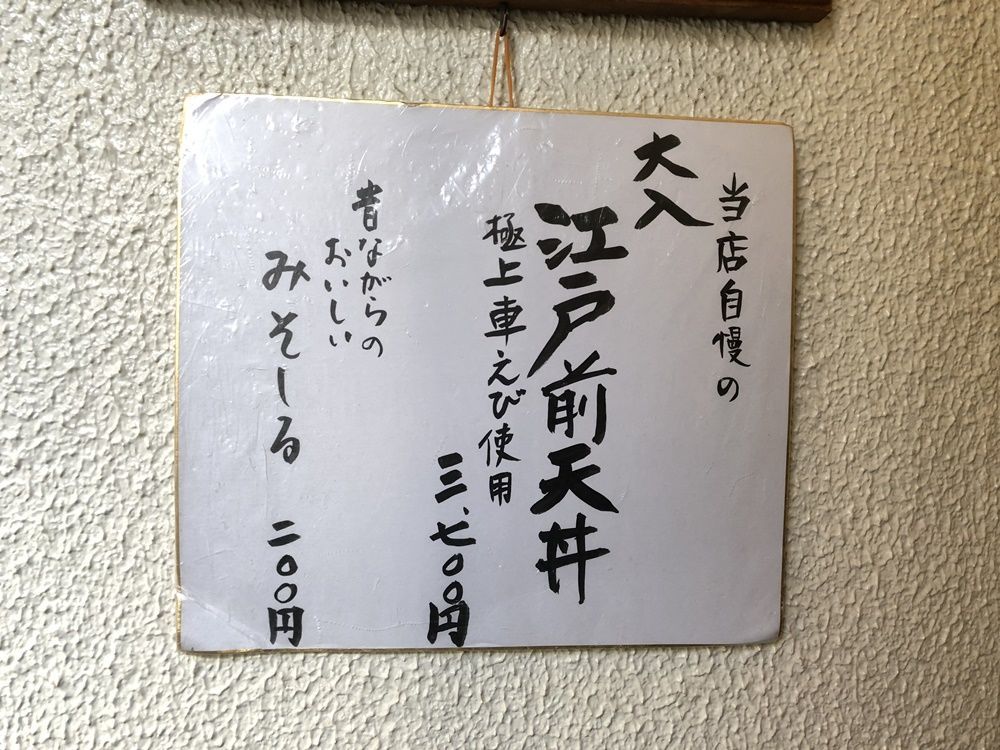 当店自慢の
大入
江戸前天丼
極上車えび使用
三、七〇〇円
昔ながらの
おいしい
みそしる 二〇〇円